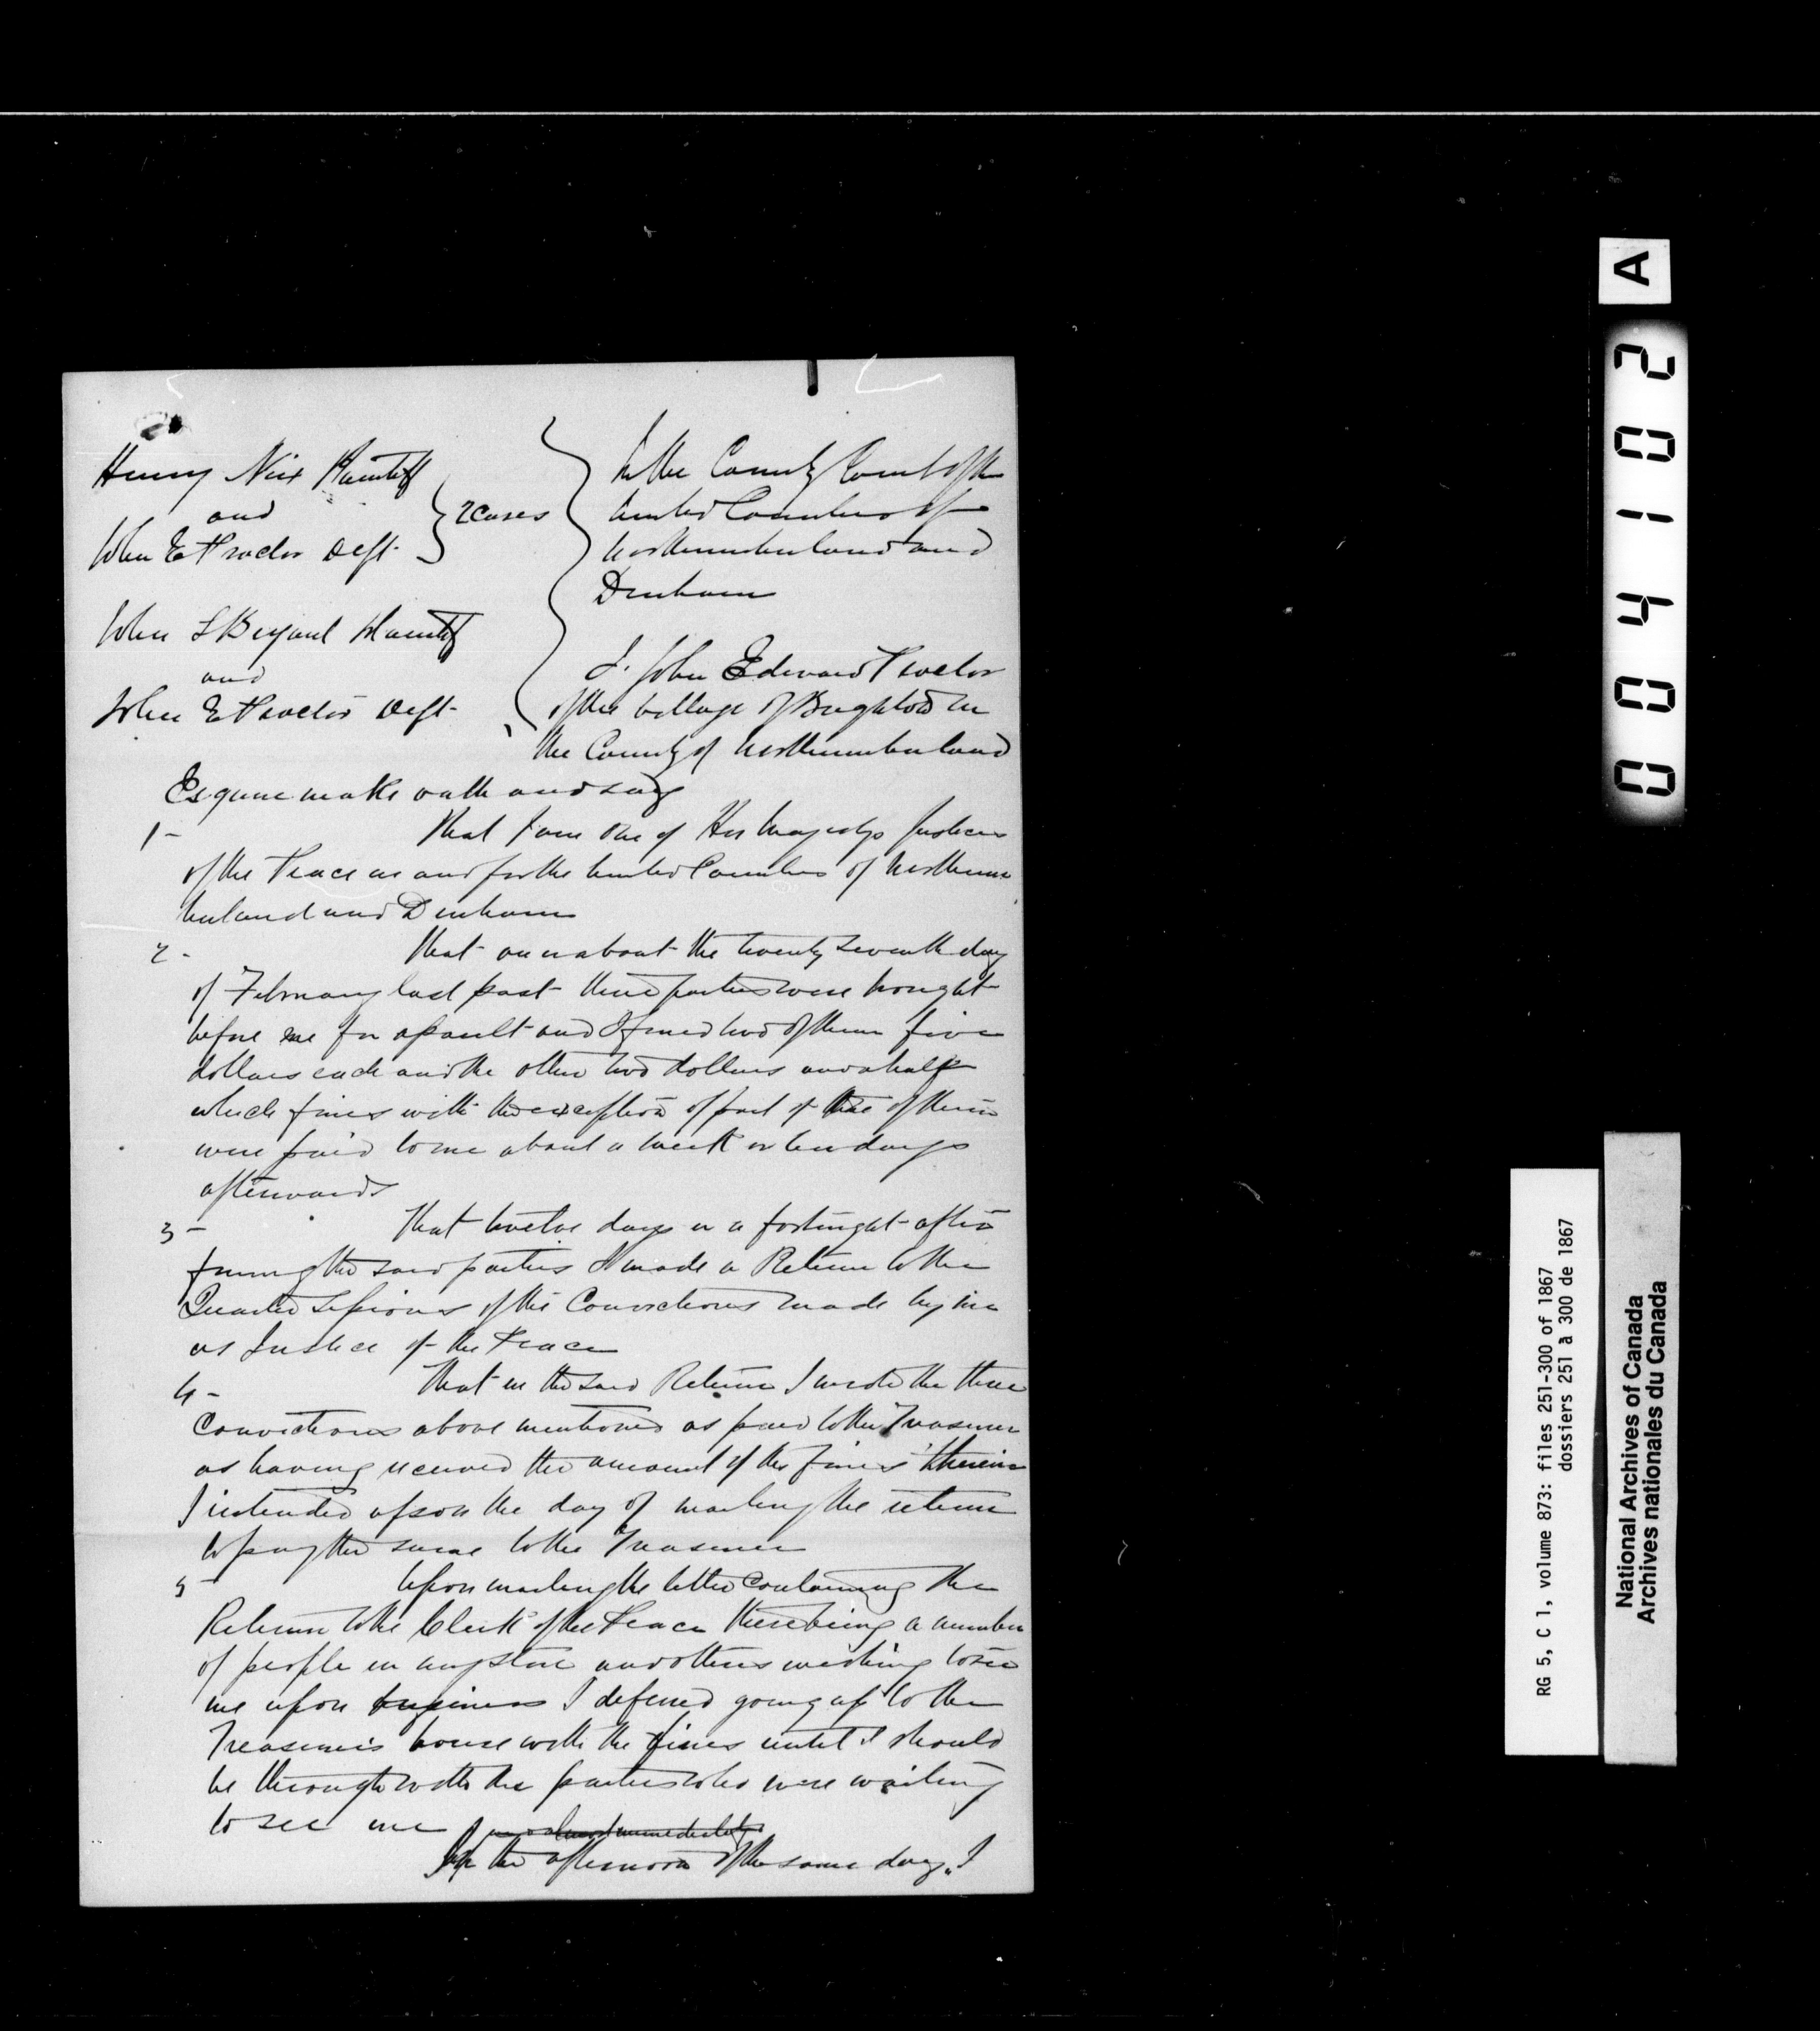 Henry Nix Plaintiff
and
John E Proctor Deft.
} 2 Cases
John L Bryant Plaintiff
and
John E Proctor Deft.
In the County Court of the
United Counties of
Northumberland and
Durham
I. John Edward Proctor
of the Village of Brighton in
the County of Northumberland
Esquire make oath and say
1- That I am one of Her Majestys Justices
of the Peace in and for the United Counties of Northum
berland and Durham
2- That on or about the twenty seventh day
of February last past three parties were brought
before me for assault and I fined two of them five
dollars each and the other two dollars and a half
which fines with the exception of part of one of them
were paid to me about a week or ten days
afterwards
3- That twelve days or a fortnight after
fining the said parties I made a Return to the
Quarter Sessions of the Convictions made by me
as Justice of the Peace
4- That in the said Return I wrote the three
Convictions above mentioned as paid to the Treasurer
as having received the amount of the fines therein
I intended upon the day of mailing the return
to pay the same to the Treasurer
5- Upon mailing the letter containing the
Return to the Clerk of the Peace there being a number
of people in my store and others wishing to see
me upon business I deferred going up to the
Treasurers house with the fines until I should
be through with the parties who were waiting
to see me
In the afternoon of the same day, I
A
004102
RG 5, C 1, volume 873: files 251-300 of 1867
dossiers 251 à 300 de 1867
National Archives of Canada
Archives nationales du Canada